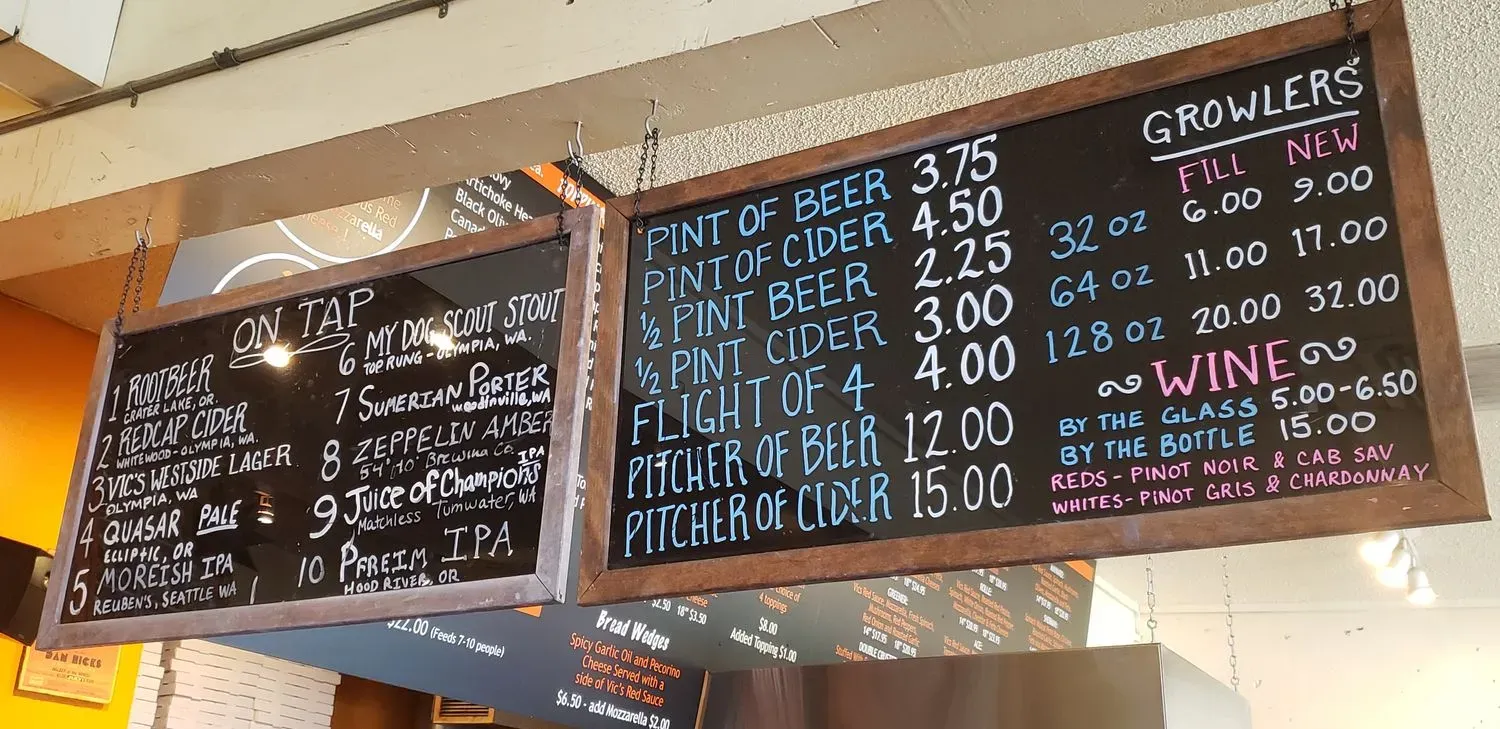 ON TAP
1 ROOTBEER
CRATER LAKE, OR.
2 REDCAP CIDER
WHITEWOOD-OLYMPIA, WA.
3 VIC'S WESTSIDE LAGER
OLYMPIA, WA
4 QUASAR PALE
ECLIPTIC, OR
5 MOREISH IPA
REUBEN'S, SEATTLE WA
6 MY DOG SCOUT STOUT
TOP RUNG-OLYMPIA, WA.
7 SUMERIAN PORTER
Woodinville, WA
8 ZEPPELIN AMBER
54°40' Brewing Co.
9 Juice of Champions IPA
Matchless Tumwater, WA
10 PFREIM IPA
HOOD RIVER, OR
PINT OF BEER 3.75
PINT OF CIDER 4.50
½ PINT BEER 2.25
½ PINT CIDER 3.00
FLIGHT OF 4 4.00
PITCHER OF BEER 12.00
PITCHER OF CIDER 15.00
GROWLERS
FILL NEW
32 oz 6.00 9.00
64 oz 11.00 17.00
128 oz 20.00 32.00
WINE
BY THE GLASS 5.00-6.50
BY THE BOTTLE 15.00
REDS- PINOT NOIR & CAB SAV
WHITES- PINOT GRIS & CHARDONNAY
Artichoke
Black
$22.00 (Feeds 7-10 people)
$2.50 18" $3.50
Bread Wedges
Spicy Garlic Oil and Pecorino
Cheese Served with a
side of Vic's Red Sauce
$6.50 - add Mozzarella $2.00
choice of
4 toppings
$8.00
Added Topping $1.00
DAN HICKS